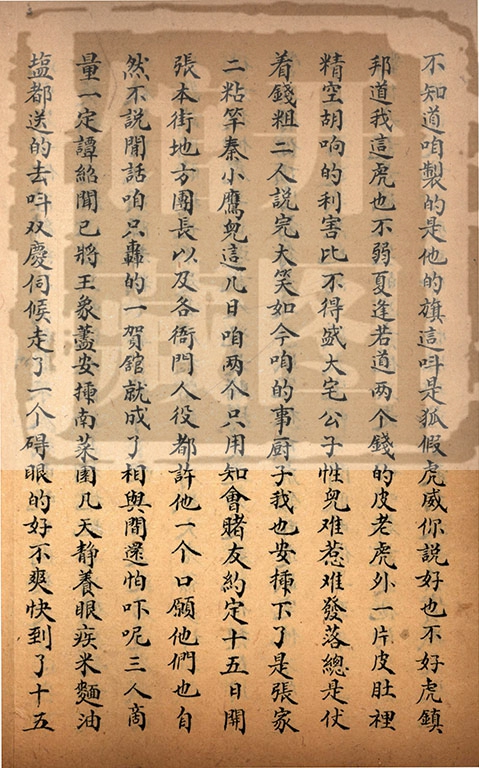 不知道咱製的是他的旗這呌是狐假虎威你說好也不好虎鎮
邦道我這虎也不弱夏逢若道两个錢的皮老虎外一片皮肚裡
精空胡响的利害比不得盛大宅公子性兒难惹难發落總是伏
着錢粗二人說完大笑如今咱的事厨子我也安揷下了是張家
二粘竿秦小鷹兒這几日咱两个只用知會賭友約定十五日開
張本街地方團長以及各衙門人役都許他一个口願他們也自
然不說閒話咱只轟的一賀舘就成了相與間還怕吓呢三人商
量一定譚紹聞已將王象藎安揷南菜園几天静養眼疾米麵油
塩都送的去呌双慶伺候走了一个碍眼的好不爽快到了十五